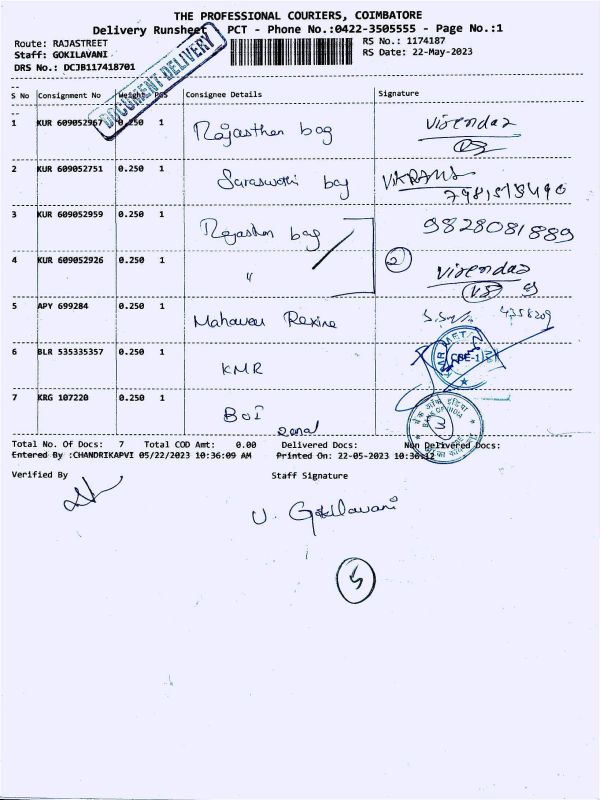 THE PROFESSIONAL COURIERS, COIMBATORE
Delivery Runsheet PCT - Phone No.:0422-3505555 - Page No.:1
Route: RAJASTREET
RS No.: 1174187
Staff: GOKILAVANI
RS Date: 22-May-2023
DRS No.: DCJB117418701
DOCUMENT DELIVERY
S No Consignment No Weight PCS Consignee Details Signature
1 KUR 609052967 0.250 1 Rajasthan bag Virendar
2 KUR 609052751 0.250 1 Saraswathi bag VIKRAMS
3 KUR 609052959 0.250 1 Rajasthan bag 9828081889
4 KUR 609052926 0.250 1 " 2 Virendar
5 APY 699284 0.250 1 Mahaveer Rexine
6 BLR 535335357 0.250 1 KMR CBE-1
7 KRG 107220 0.250 1 BOI zonal
बैंक ऑफ इंडिया
BANK OF INDIA
3
Total No. Of Docs: 7 Total COD Amt: 0.00 Delivered Docs: Non Delivered Docs:
Entered By :CHANDRIKAPVI 05/22/2023 10:36:09 AM Printed On: 22-05-2023 10:36:12
Verified By Staff Signature
U. Gokilavani
5